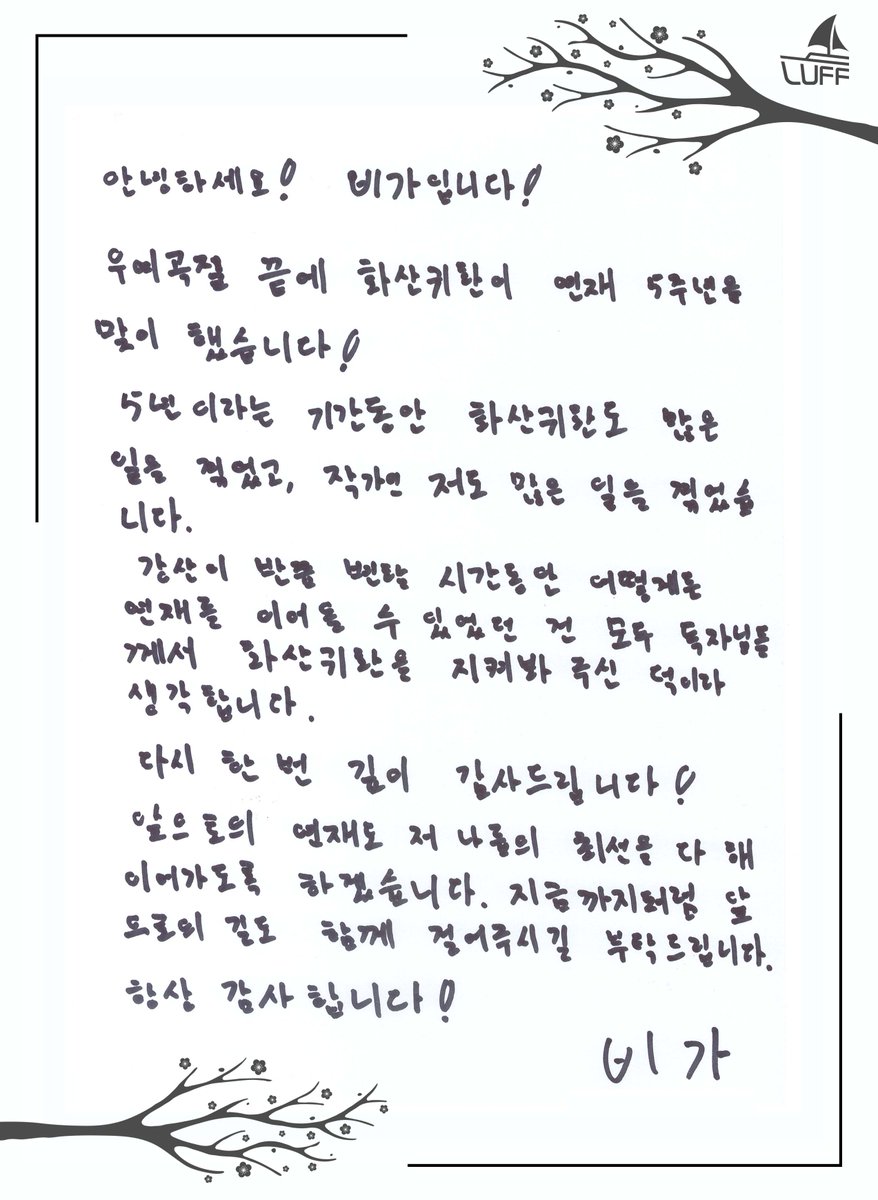 LUFF
안녕하세요! 비가입니다!
우여곡절 끝에 화산귀환이 연재 5주년을
맞이 했습니다!
5년이라는 기간동안 화산귀환도 많은
일을 겪었고, 작가인 저도 많은 일을 겪었습
니다.
강산이 반쯤 변할 시간동안 어떻게든
연재를 이어올 수 있었던 건 모두 독자님들
께서 화산귀환을 지켜봐 주신 덕이라
생각합니다.
다시 한 번 깊이 감사드립니다!
앞으로의 연재도 저 나름의 최선을 다 해
이어가도록 하겠습니다. 지금까지처럼 앞
으로의 길도 함께 걸어주시길 부탁드립니다.
항상 감사합니다!
비가